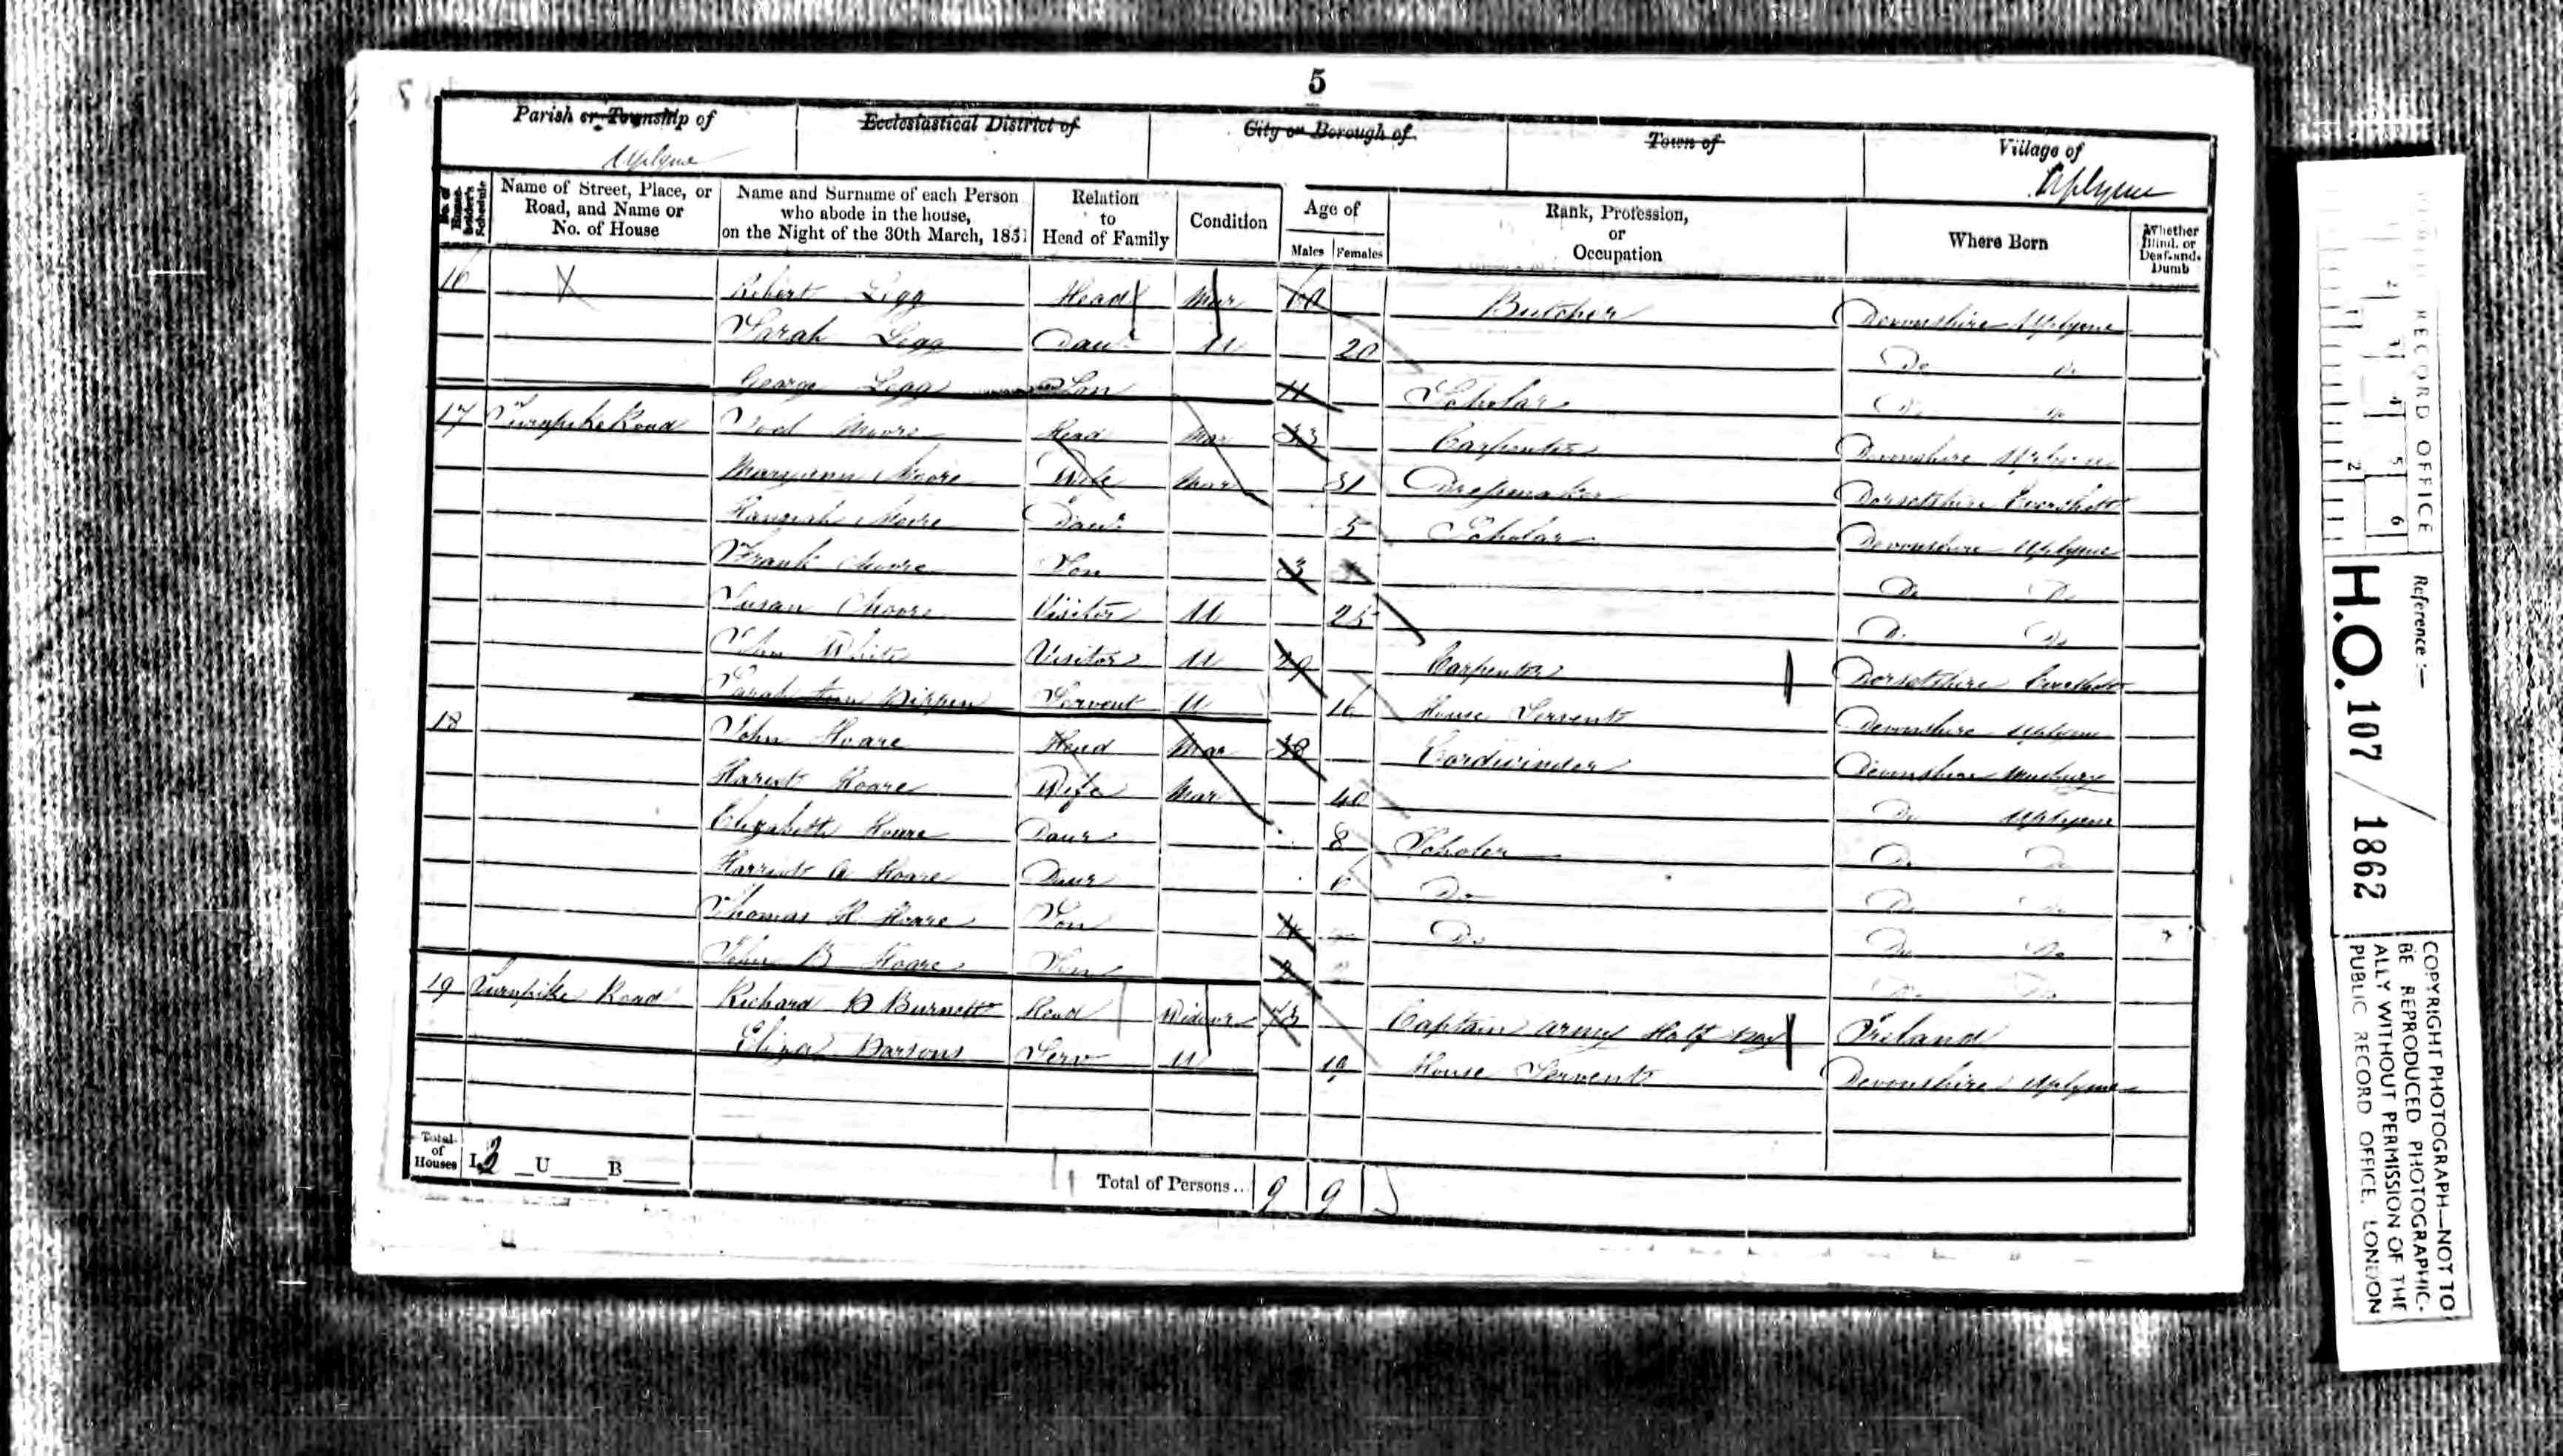 5
Parish or Township of
Uplyme
Ecclesiastical District of
City or Borough of
Town of
Village of
Uplyme
No. of House-holder's Schedule
Name of Street, Place, or Road, and Name or No. of House
Name and Surname of each Person who abode in the house, on the Night of the 30th March, 1851
Relation to Head of Family
Condition
Age of
Males Females
Rank, Profession, or Occupation
Where Born
Whether Blind, or Deaf-and-Dumb
16 X Robert Legg Head Mar 60 Butcher Devonshire Uplyme
Sarah Legg Daur U 20 Do Do
George Legg Son 11 Scholar Do Do
17 Turnpike Road Moore Head Mar 33 Carpenter Devonshire Uplyme
Maryann Moore Wife Mar 31 Dressmaker Dorsetshire Evershott
Hannah Moore Daur 5 Scholar Devonshire Uplyme
Frank Moore Son 3 Do Do
Susan Moore Visitor U 25 Do Do
John White Visitor U 29 Carpenter Dorsetshire Evershott
Sarah Ann Pippen Servent U 16 House Servent Devonshire Uplyme
18 John Hoare Head Mar 38 Cordwinder Devonshire Musbury
Hariet Hoare Wife Mar 40 Do Uplyme
Elizabeth Hoare Daur 8 Scholer Do Do
Harriet A Hoare Daur 6 Do Do Do
Thomas H Hoare Son 4 Do Do Do
John B Hoare Son 2 Do Do
19 Turnpike Road Richard P Burnett Head Widowr 73 Captain Army Half Pay Ireland
Eliza Parsons Serv U 19 House Servent Devonshire Uplyme
Total of Houses I 3 U B
Total of Persons... 9 9
PUBLIC RECORD OFFICE
1 2 3 4 5 6
1 2
Reference:-
H.O. 107 / 1862
COPYRIGHT PHOTOGRAPH—NOT TO
BE REPRODUCED PHOTOGRAPHIC-
ALLY WITHOUT PERMISSION OF THE
PUBLIC RECORD OFFICE, LONDON